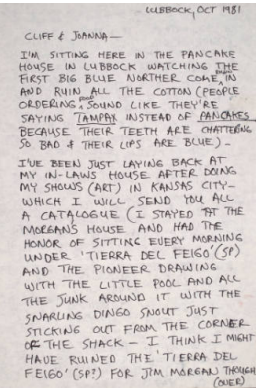 LUBBOCK, OCT 1981
CLIFF & JOANNA—
I'M SITTING HERE IN THE PANCAKE
HOUSE IN LUBBOCK WATCHING THE
FIRST BIG BLUE NORTHER COME IN
AND RUIN ALL THE COTTON (PEOPLE
ORDERING FOOD SOUND LIKE THEY'RE
SAYING TAMPAX INSTEAD OF PANCAKES
BECAUSE THEIR TEETH ARE CHATTERING
SO BAD & THEIR LIPS ARE BLUE)—
I'VE BEEN JUST LAYING BACK AT
MY IN-LAWS HOUSE AFTER DOING
MY SHOWS (ART) IN KANSAS CITY—
WHICH I WILL SEND YOU ALL
A CATALOGUE (I STAYED AT THE
MORGAN'S HOUSE AND HAD THE
HONOR OF SITTING EVERY MORNING
UNDER 'TIERRA DEL FEIGO' (SP)
AND THE PIONEER DRAWING
WITH THE LITTLE POOL AND ALL
THE JUNK AROUND IT WITH THE
SNARLING DINGO SNOUT JUST
STICKING OUT FROM THE CORNER
OF THE SHACK — I THINK I MIGHT
HAVE RUINED THE 'TIERRA DEL
FEIGO' (SP?) FOR JIM MORGAN THOUGH
(OVER)